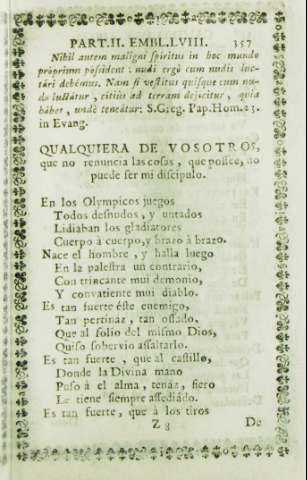 PART.II. EMBL.LVIII. 357
Nihil autem maligni spiritus in hoc mundo
proprium possident: nudi ergò cum nudis luc-
tári debémus. Nam si vestitus quisque cum nu-
do luctátur, citiùs ad terram dejicitur, quia
hábet, undè teneátur: S.Greg. Pap.Hom.
in Evang.
QUALQUIERA DE VOSOTROS,
que no renuncia las cosas, que possee, no
puede ser mi discipulo.
En los Olympicos juegos
Todos desnudos, y untados
Lidiaban los gladiatores
Cuerpo à cuerpo, y brazo à brazo.
Nace el hombre, y halla luego
En la palestra un contrario,
Con trincante mui demonio,
Y convatiente mui diablo.
Es tan fuerte éste enemigo,
Tan pertinaz, tan ossado,
Que al solio del mismo Dios,
Quiso sobervio assaltarlo.
Es tan fuerte, que al castillo,
Donde la Divina mano
Puso à el alma, tenáz, fiero
Le tiene siempre assediádo.
Es tan fuerte, que à los tiros
Z 3 De